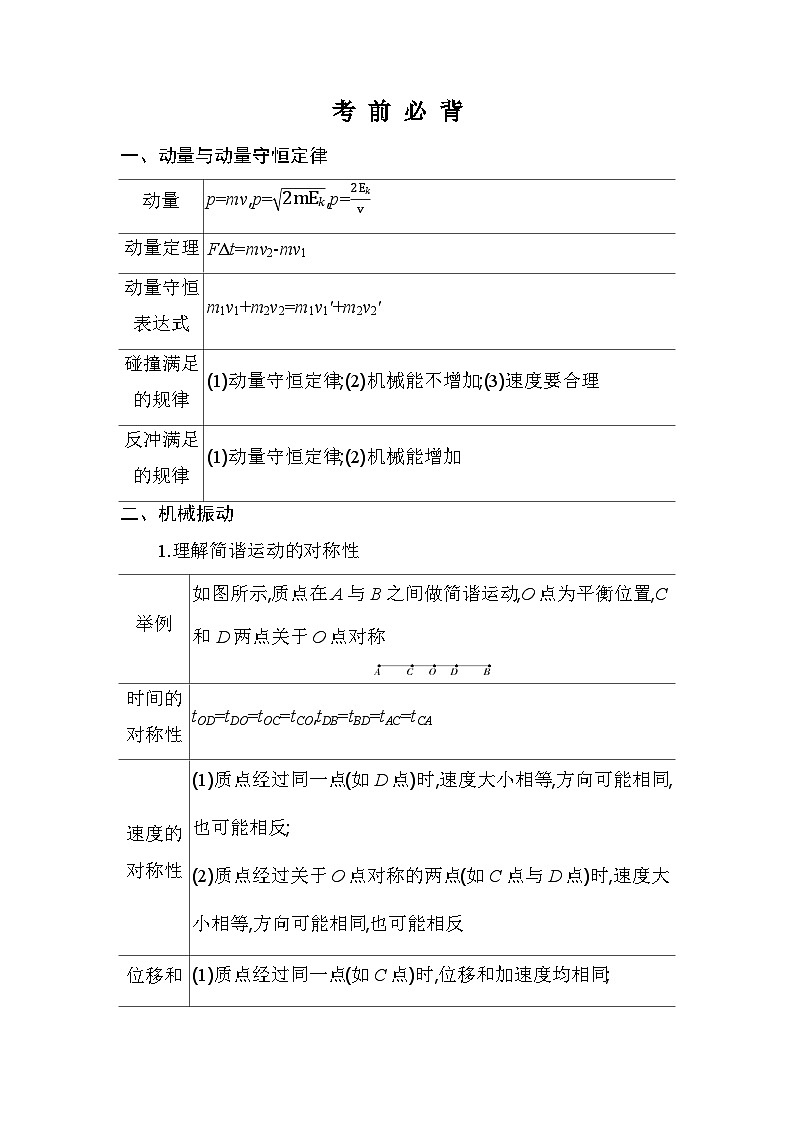 考 前 必 背
一、动量与动量守恒定律
动量 p=mv,p=√2mEₖ,p=2Eₖ/v
动量定理 FΔt=mv₂-mv₁
动量守恒
表达式
m₁v₁+m₂v₂=m₁v₁'+m₂v₂'
碰撞满足
的规律
(1)动量守恒定律;(2)机械能不增加;(3)速度要合理
反冲满足
的规律
(1)动量守恒定律;(2)机械能增加
二、机械振动
1.理解简谐运动的对称性
举例
如图所示,质点在A与B之间做简谐运动,O点为平衡位置,C
和D两点关于O点对称
A C O D B
时间的
对称性
tOD=tDO=tOC=tCO,tDB=tBD=tAC=tCA
速度的
对称性
(1)质点经过同一点(如D点)时,速度大小相等,方向可能相同,
也可能相反;
(2)质点经过关于O点对称的两点(如C点与D点)时,速度大
小相等,方向可能相同,也可能相反
位移和 (1)质点经过同一点(如C点)时,位移和加速度均相同;